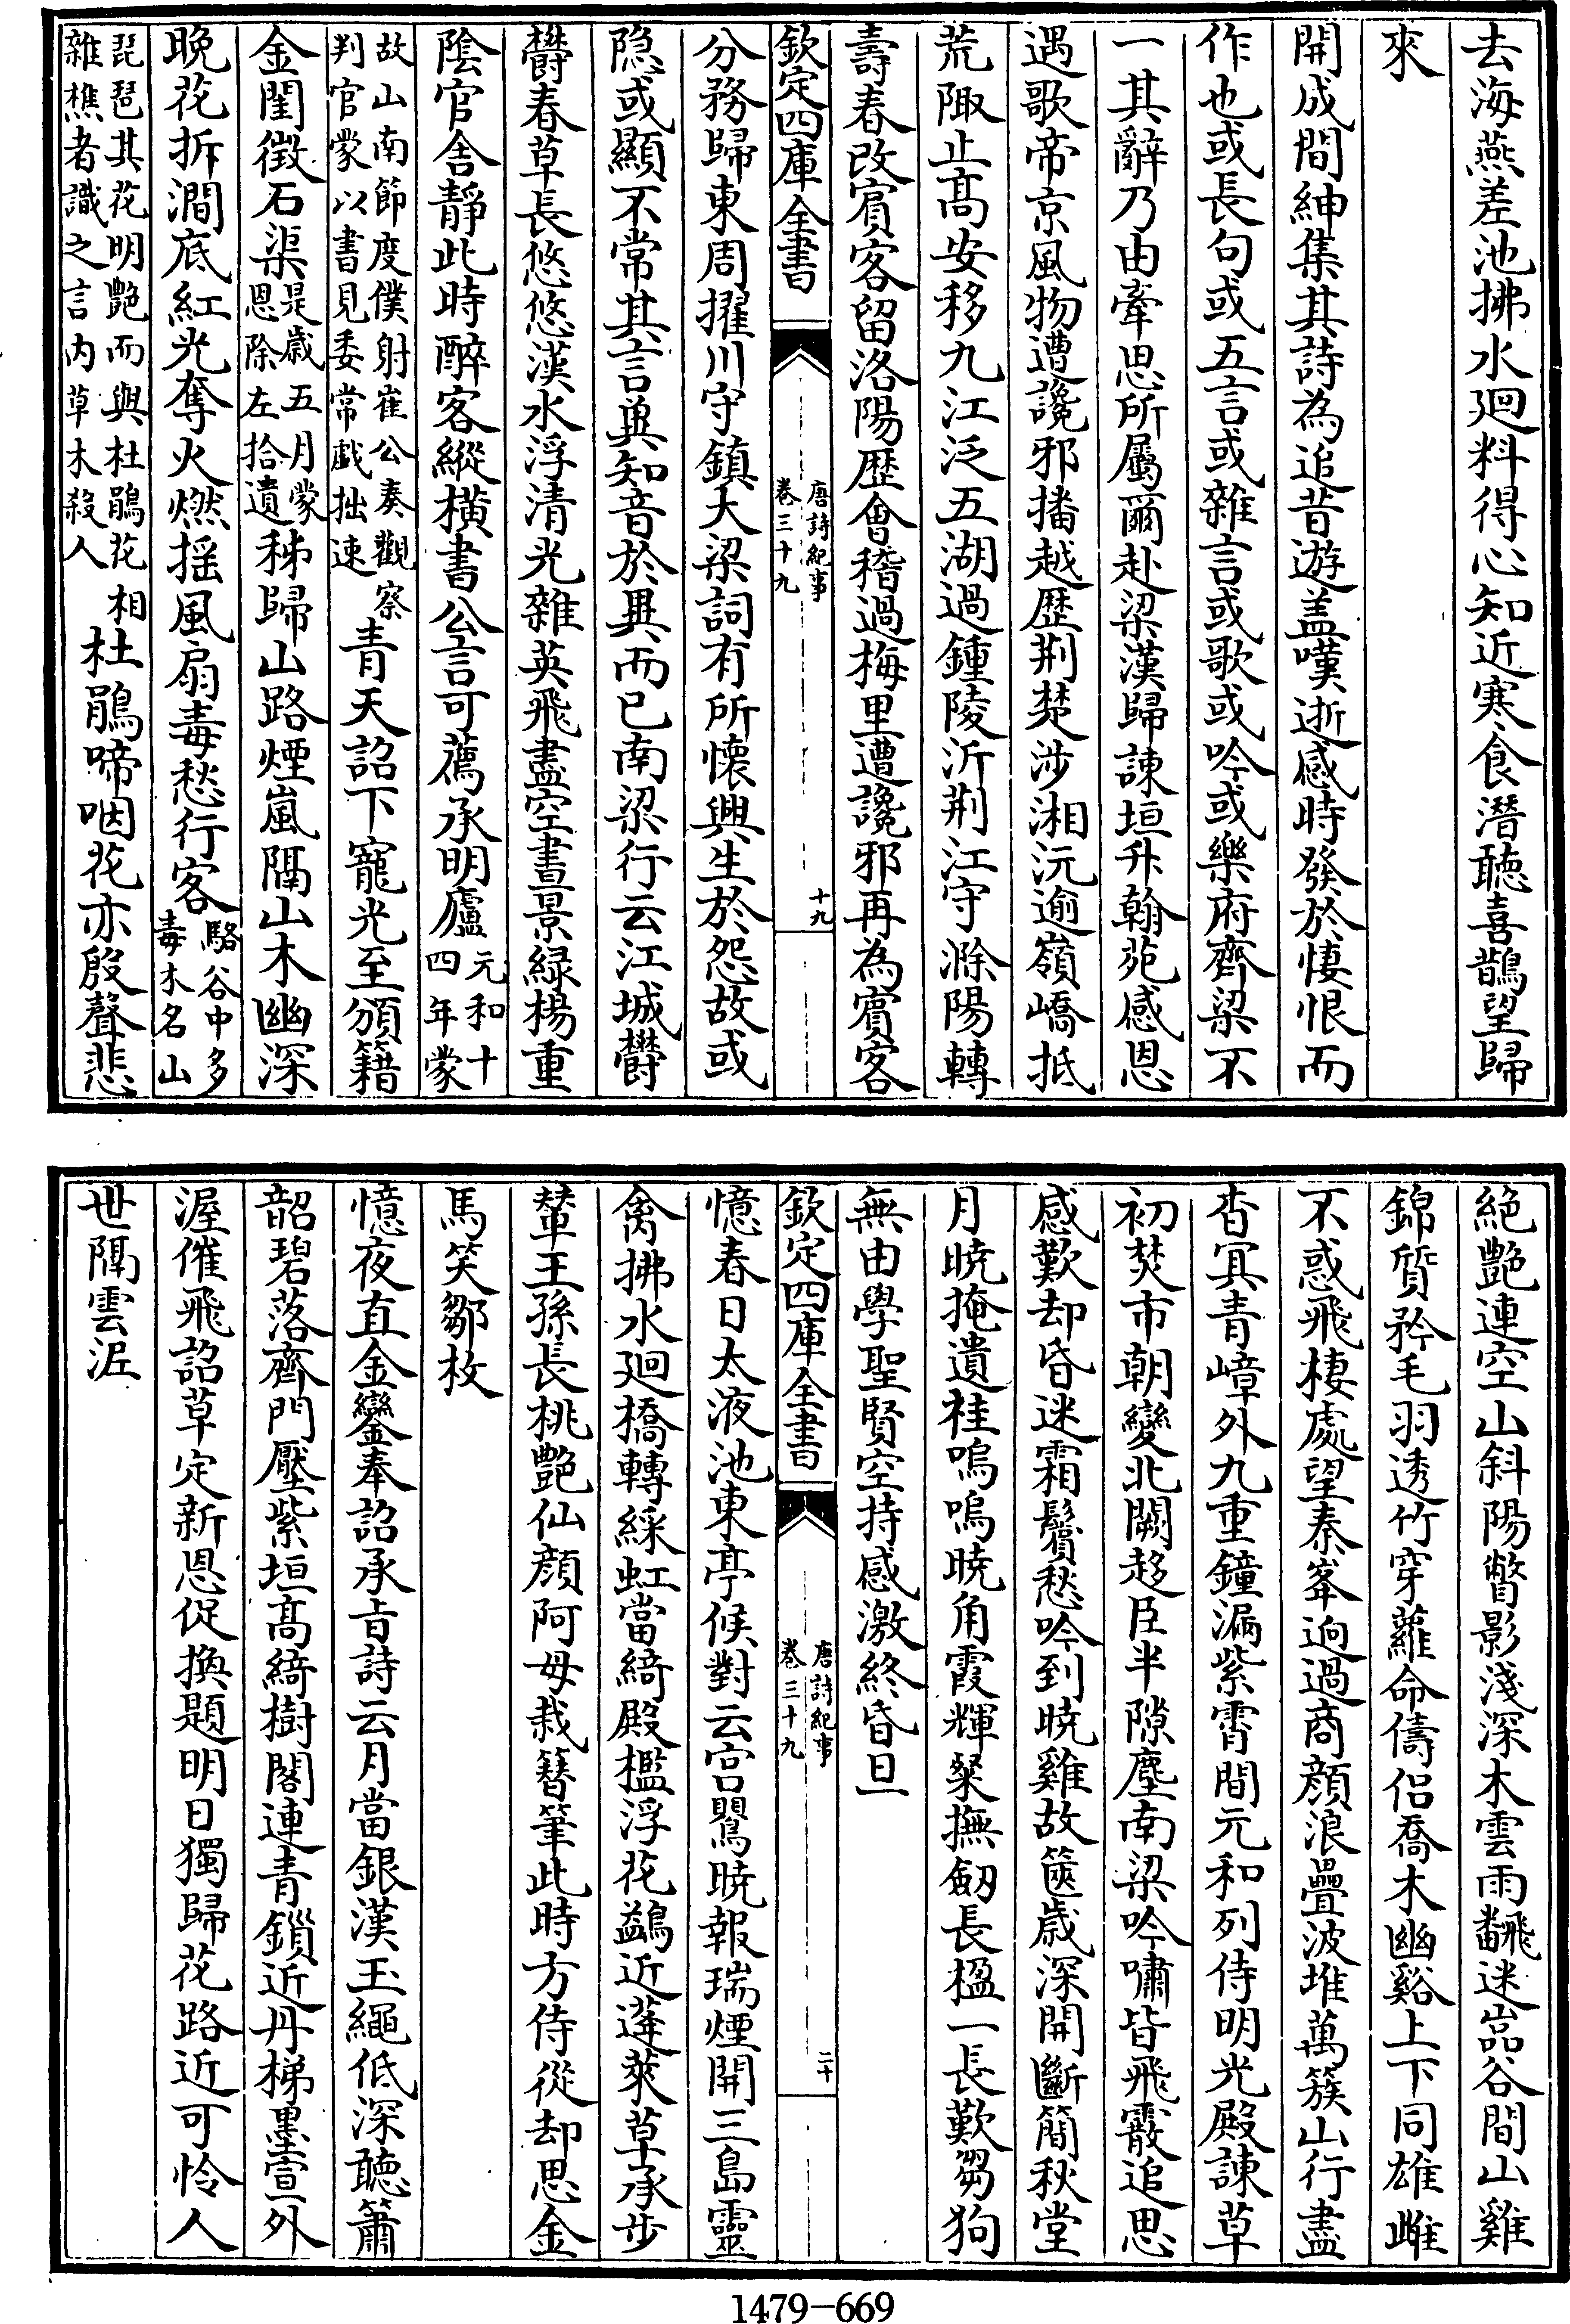 去海燕差池拂水迴料得心知近寒食潛聽喜鵲望歸
來
開成間紳集其詩為追昔遊盖嘆逝感時發於悽恨而
作也或長句或五言或雜言或歌或吟或樂府齊梁不
一其辭乃由牽思所屬爾赴梁漢歸諫垣升翰苑感恩
遇歌帝京風物遭讒邪播越歴荆楚涉湘沅逾嶺嶠抵
荒陬止髙安移九江泛五湖過鍾陵沂荆江守滁陽轉
壽春改賓客留洛陽歴會稽過梅里遭讒邪再為賓客
欽定四庫全書
唐詩紀事
卷三十九
十九
分務歸東周擢川守鎮大梁詞有所懐興生於怨故或
隠或顯不常其言兾知音於異而已南梁行云江城欝
欝春草長悠悠漢水浮清光雜英飛盡空晝景緑楊重
陰官舎靜此時醉客縱橫書公言可薦承明廬元和十
四年蒙
故山南節度僕射崔公奏觀察
判官蒙以書見委常戲拙速青天詔下寵光至頒籍
金閨徴石渠是歳五月蒙
恩除左拾遺秭歸山路煙嵐隔山木幽深
晚花拆澗底紅光奪火燃揺風扇毒愁行客駱谷中多
毒木名山
琵琶其花明艷而與杜鵑花相
雜樵者識之言内草木殺人杜鵑啼咽花亦殷聲悲
絶艷連空山斜陽瞥影淺深木雲雨飜迷嵓谷間山雞
錦質矜毛羽透竹穿蘿命儔侣喬木幽谿上下同雄雌
不惑飛棲處望秦峯逈過商顔浪疊波堆萬簇山行盡
杳冥青嶂外九重鐘漏紫霄間元和列侍明光殿諫草
初焚市朝變北闕趍臣半隙塵南梁吟嘯皆飛霰追思
感歎却昏迷霜鬢愁吟到暁雞故篋歳深開斷簡秋堂
月暁掩遺袿嗚嗚暁角霞輝粲撫劒長楹一長歎芻狗
無由學聖賢空持感激終昏旦
欽定四庫全書
唐詩紀事
卷三十九
二十
憶春日太液池東亭候對云宫鸎暁報瑞煙開三島靈
禽拂水廻橋轉綵虹當綺殿檻浮花鷁近蓬萊草承步
輦王孫長桃艷仙顔阿母栽簪筆此時方侍從却思金
馬笑鄒枚
憶夜直金鑾奉詔承㫖詩云月當銀漢玉繩低深聽簫
韶碧落齊門壓紫垣髙綺樹閣連青鎻近丹梯墨宣外
渥催飛詔草定新恩促換題明日獨歸花路近可怜人
世隔雲泥
1479-669